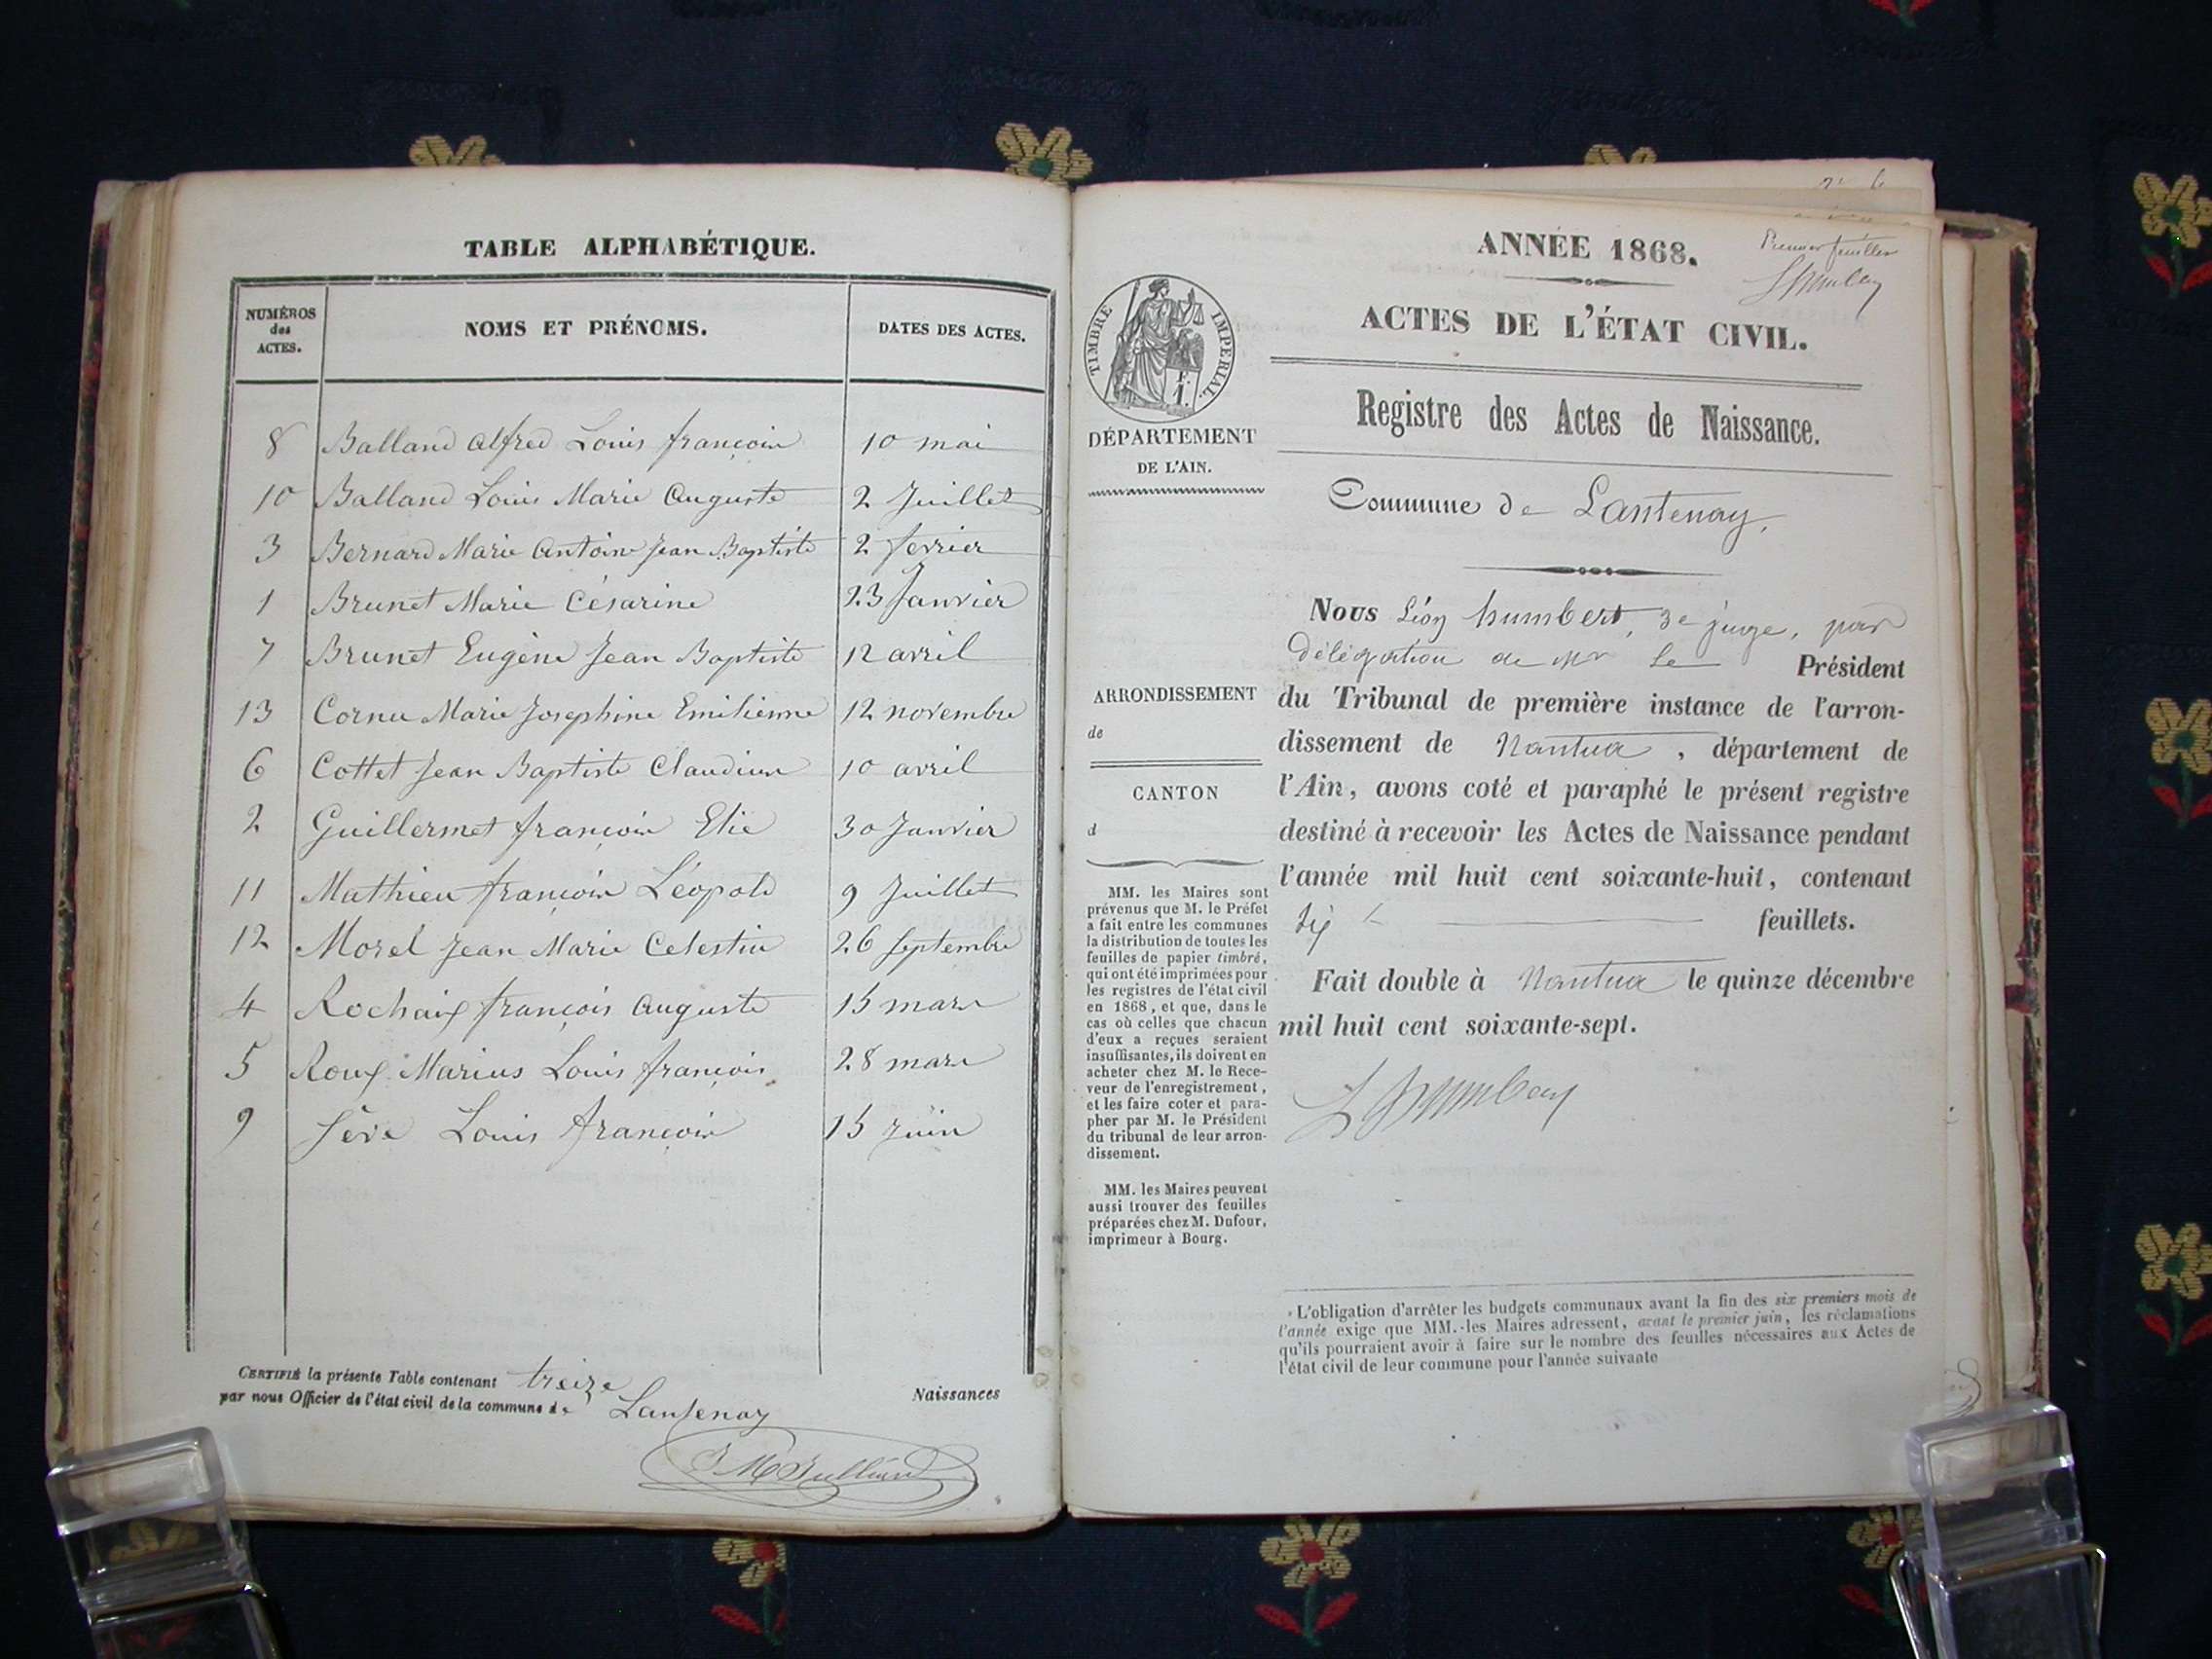 TABLE ALPHABÉTIQUE.
NUMÉROS
des
ACTES.
NOMS ET PRÉNOMS.
DATES DES ACTES.
8 Balland Alfred Louis françois 10 mai
10 Balland Louis Marie Auguste 2 Juillet
3 Bernard Marie Antoine Jean Baptiste 2 fevrier
1 Brunet Marie Césarine 23 Janvier
7 Brunet Eugène Jean Baptiste 12 avril
13 Cornu Marie Josephine Emilienne 12 novembre
6 Cottet Jean Baptiste Claudius 10 avril
2 Guillermet françois Elie 30 Janvier
11 Mathieu françois Léopold 9 Juillet
12 Morel Jean Marie Celestin 26 Septembre
4 Rochaix françois Auguste 15 mars
5 Roux Marius Louis françois 28 mars
9 Sève Louis françois 15 Juin
CERTIFIÉ la présente Table contenant treize Naissances
par nous Officier de l'état civil de la commune de Lantenay
ANNÉE 1868.
Premier feuillet
ACTES DE L'ÉTAT CIVIL.
Registre des Actes de Naissance.
TIMBRE IMPÉRIAL.
DÉPARTEMENT
DE L'AIN.
Commune de Lantenay,
Nous Léon humbert, 3e juge, par
délégation de Mr le Président
du Tribunal de première instance de l'arron-
dissement de Nantua, département de
l'Ain, avons coté et paraphé le présent registre
destiné à recevoir les Actes de Naissance pendant
l'année mil huit cent soixante-huit, contenant
six feuillets.
Fait double à Nantua le quinze décembre
mil huit cent soixante-sept.
ARRONDISSEMENT
de
CANTON
d
MM. les Maires sont
prévenus que M. le Préfet
a fait entre les communes
la distribution de toutes les
feuilles de papier timbré,
qui ont été imprimées pour
les registres de l'état civil
en 1868, et que, dans le
cas où celles que chacun
d'eux a reçues seraient
insuffisantes, ils doivent en
acheter chez M. le Rece-
veur de l'enregistrement,
et les faire coter et para-
pher par M. le Président
du tribunal de leur arron-
dissement.
MM. les Maires peuvent
aussi trouver des feuilles
préparées chez M. Dufour,
imprimeur à Bourg.
L'obligation d'arrêter les budgets communaux avant la fin des six premiers mois de
l'année exige que MM. les Maires adressent, avant le premier juin, les réclamations
qu'ils pourraient avoir à faire sur le nombre des feuilles nécessaires aux Actes de
l'état civil de leur commune pour l'année suivante